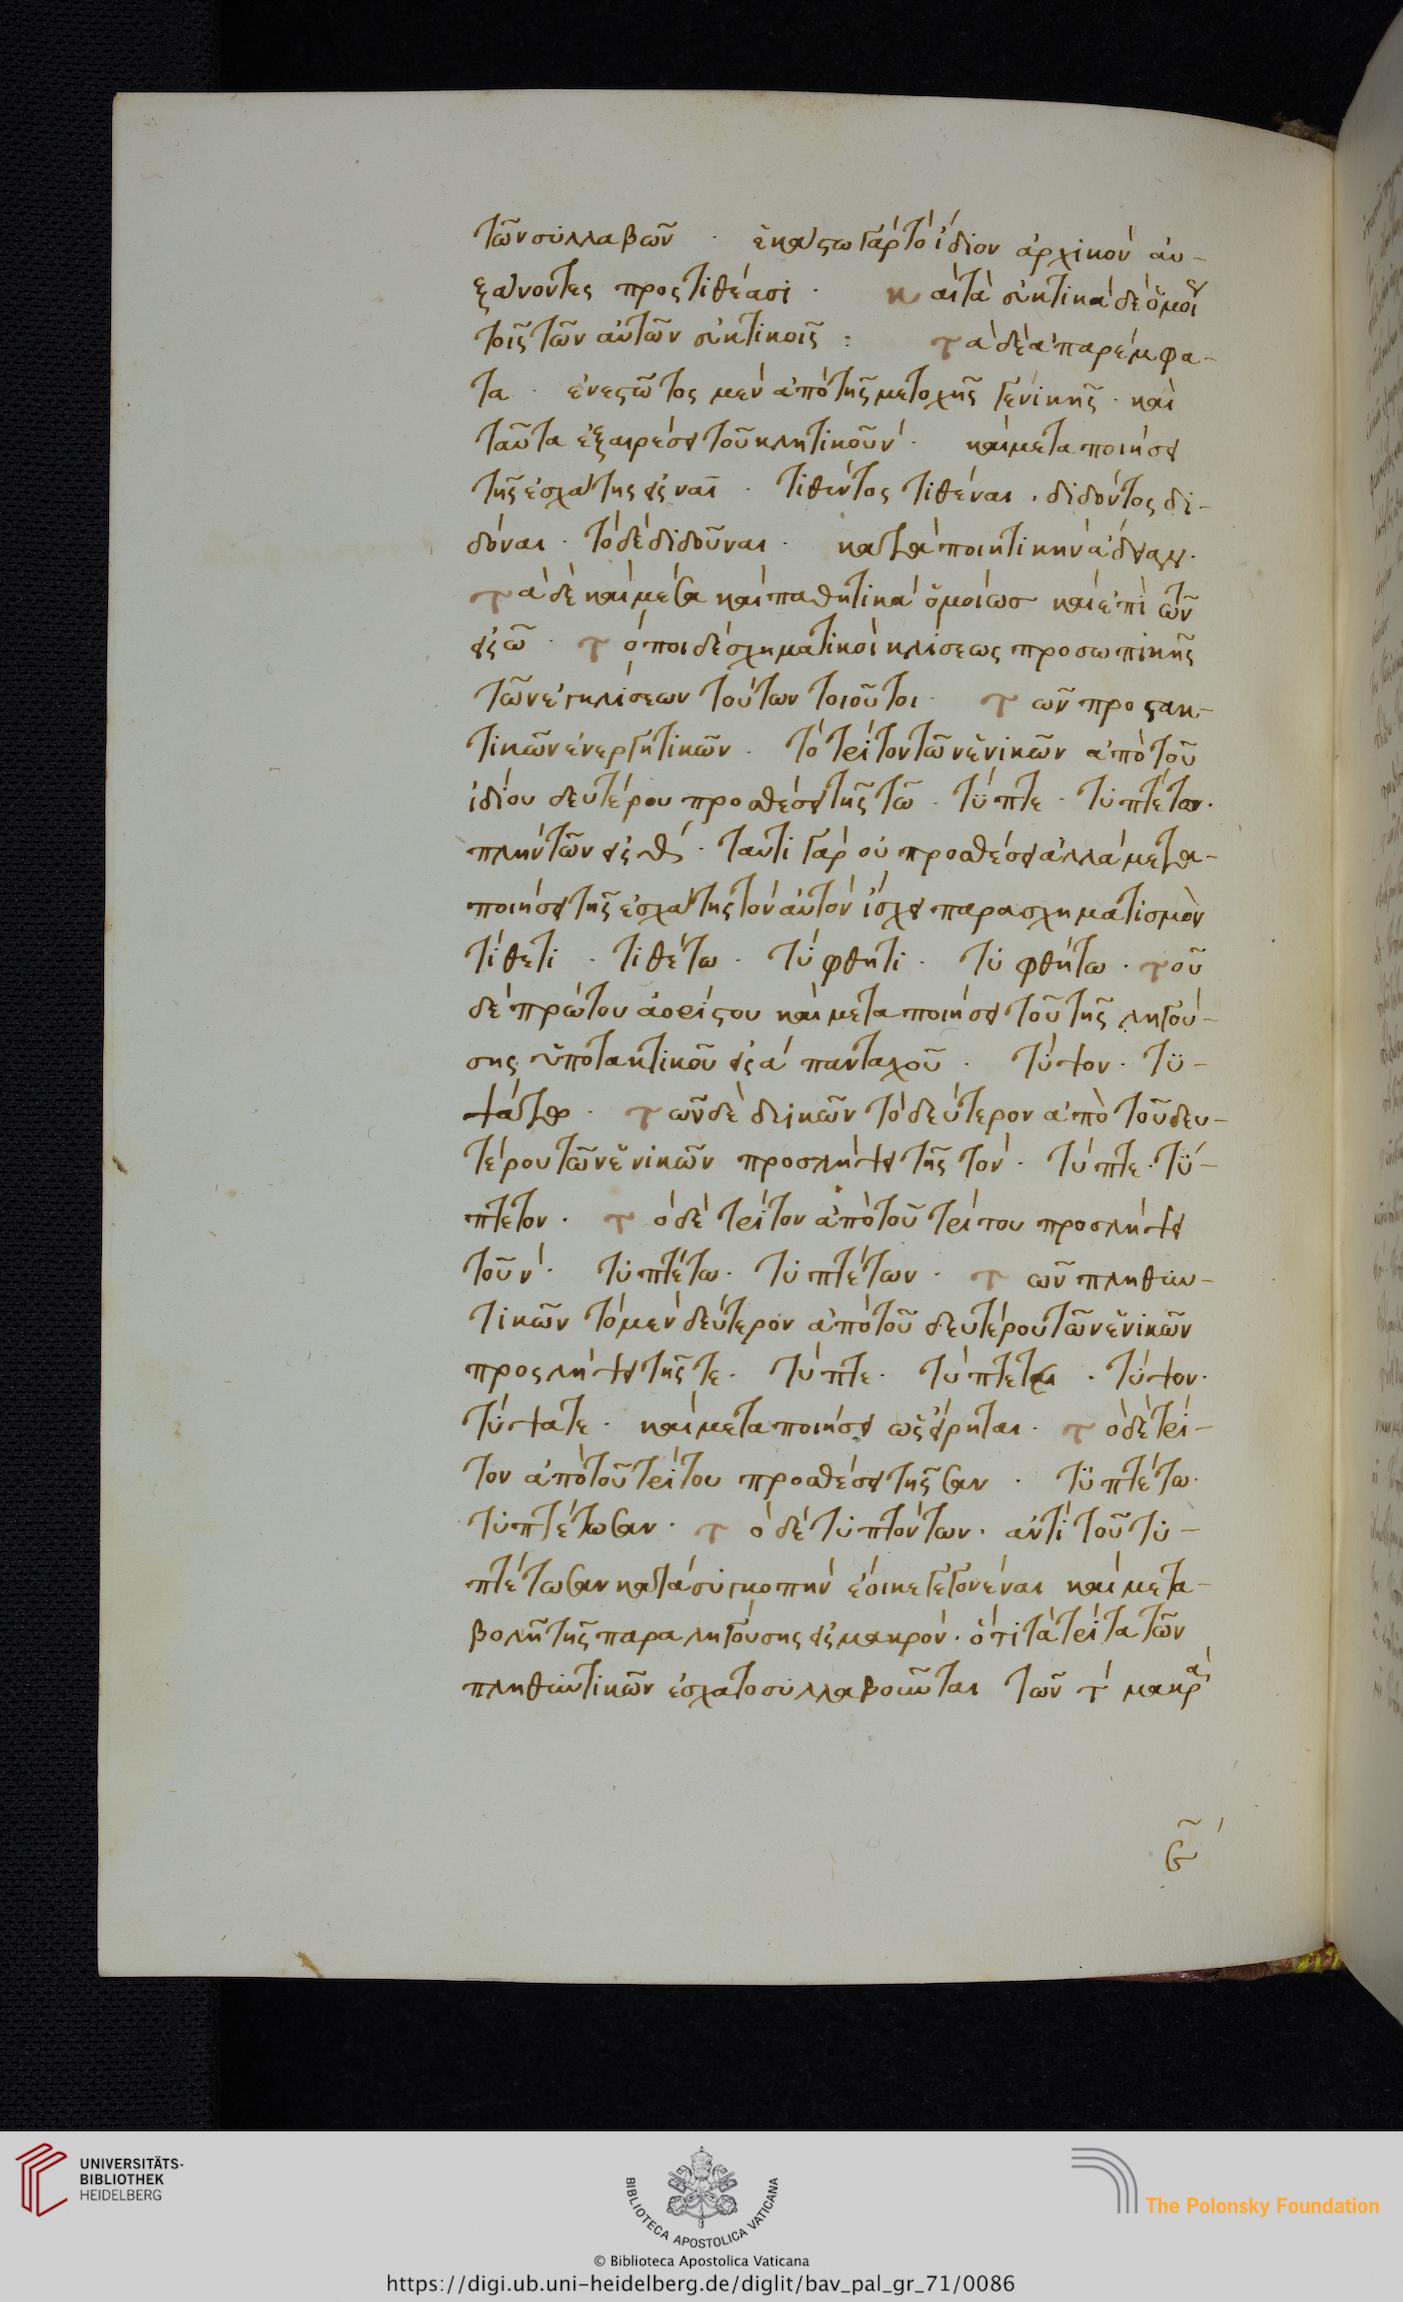 τῶν συλλαβῶν · ἑκάστω γὰρ τὸ ἴδιον ἀρχικὸν αὐ-
ξάνοντες προστιθέασι · καὶ τὰ εὐκτικὰ δὲ ὁμοῦ
τοῖς τῶν αὐτῶν εὐκτικοῖς : τὰ δὲ ἀπαρέμφα-
τα · ἐνεστῶτος μὲν ἀπὸ τῆς μετοχῆς γενικῆς · καὶ
ταῦτα ἐξαιρέσει τοῦ κλητικοῦ ν´ · καὶ μεταποιήσει
τῆς ἐσχάτης εἰς ναι · τιθέντος τιθέναι · διδόντος δι-
δόναι · τὸ δὲ διδοῦναι · κατὰ ποιητικὴν ἄδειαν ·
τὰ δὲ καὶ μέσα καὶ παθητικὰ ὁμοίως καὶ ἐπὶ τῶν
εἰς ω · τόποι δὲ σχηματικοὶ κλίσεως προσωπικῆς
τῶν ἐγκλίσεων τούτων τοιοῦτοι · τῶν προστακ-
τικῶν ἐνεργητικῶν · τὸ τρίτον τῶν ἑνικῶν ἀπὸ τοῦ
ἰδίου δευτέρου προσθέσει τῆς τω · τύπτε · τυπτέτω ·
πλὴν τῶν εἰς θι · ταυτὶ γὰρ οὐ προσθέσει ἀλλὰ μετα-
ποιήσει τῆς ἐσχάτης τὸν αὐτὸν ἴσχει παρασχηματισμὸν
τίθετι · τιθέτω · τύφθητι · τυφθήτω · τοῦ
δὲ πρώτου ἀορίστου καὶ μεταποιήσει τοῦ τῆς ληγού-
σης ὑποτακτικοῦ εἰς α´ πανταχοῦ · τύψον · τυ-
ψάτω · τῶν δὲ δυικῶν τὸ δεύτερον ἀπὸ τοῦ δευ-
τέρου τῶν ἑνικῶν προσλήψει τῆς τον · τύπτε · τύ-
πτετον · τὸ δὲ τρίτον ἀπὸ τοῦ τρίτου προσλήψει
τοῦ ν´ · τυπτέτω · τυπτέτων · τῶν πληθυν-
τικῶν τὸ μὲν δεύτερον ἀπὸ τοῦ δευτέρου τῶν ἑνικῶν
προσλήψει τῆς τε · τύπτε · τύπτετε · τύψον ·
τύψατε · καὶ μεταποιήσει ὡς εἴρηται · τὸ δὲ τρί-
τον ἀπὸ τοῦ τρίτου προσθέσει τῆς σαν · τυπτέτω ·
τυπτέτωσαν · τὸ δὲ τυπτόντων · ἀντὶ τοῦ τυ-
πτέτωσαν κατὰ συγκοπὴν ἔοικε γεγονέναι καὶ μετα-
βολῆ τῆς παραληγούσης εἰς μακρόν · ὅτι τὰ τρίτα τῶν
πληθυντικῶν ἐσχατοσυλλαβοῦνται τῶν τ´ μακρὰ
UNIVERSITÄTS-
BIBLIOTHEK
HEIDELBERG
BIBLIOTECA APOSTOLICA VATICANA
© Biblioteca Apostolica Vaticana
The Polonsky Foundation
https://digi.ub.uni-heidelberg.de/diglit/bav_pal_gr_71/0086